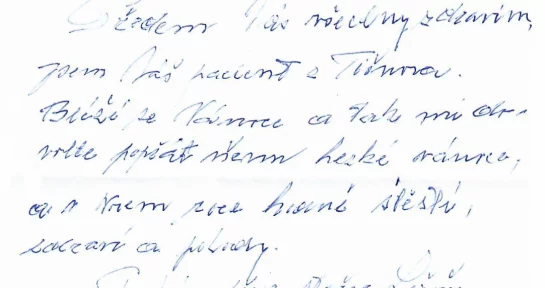 Předem Vás všechny zdravím,
jsem Váš pacient z Tišnova.
Blíží se Vánoce a tak mi do-
volte popřát Všem hezké vánoce,
a v Novém roce hodně štěstí,
zdraví a pohody.